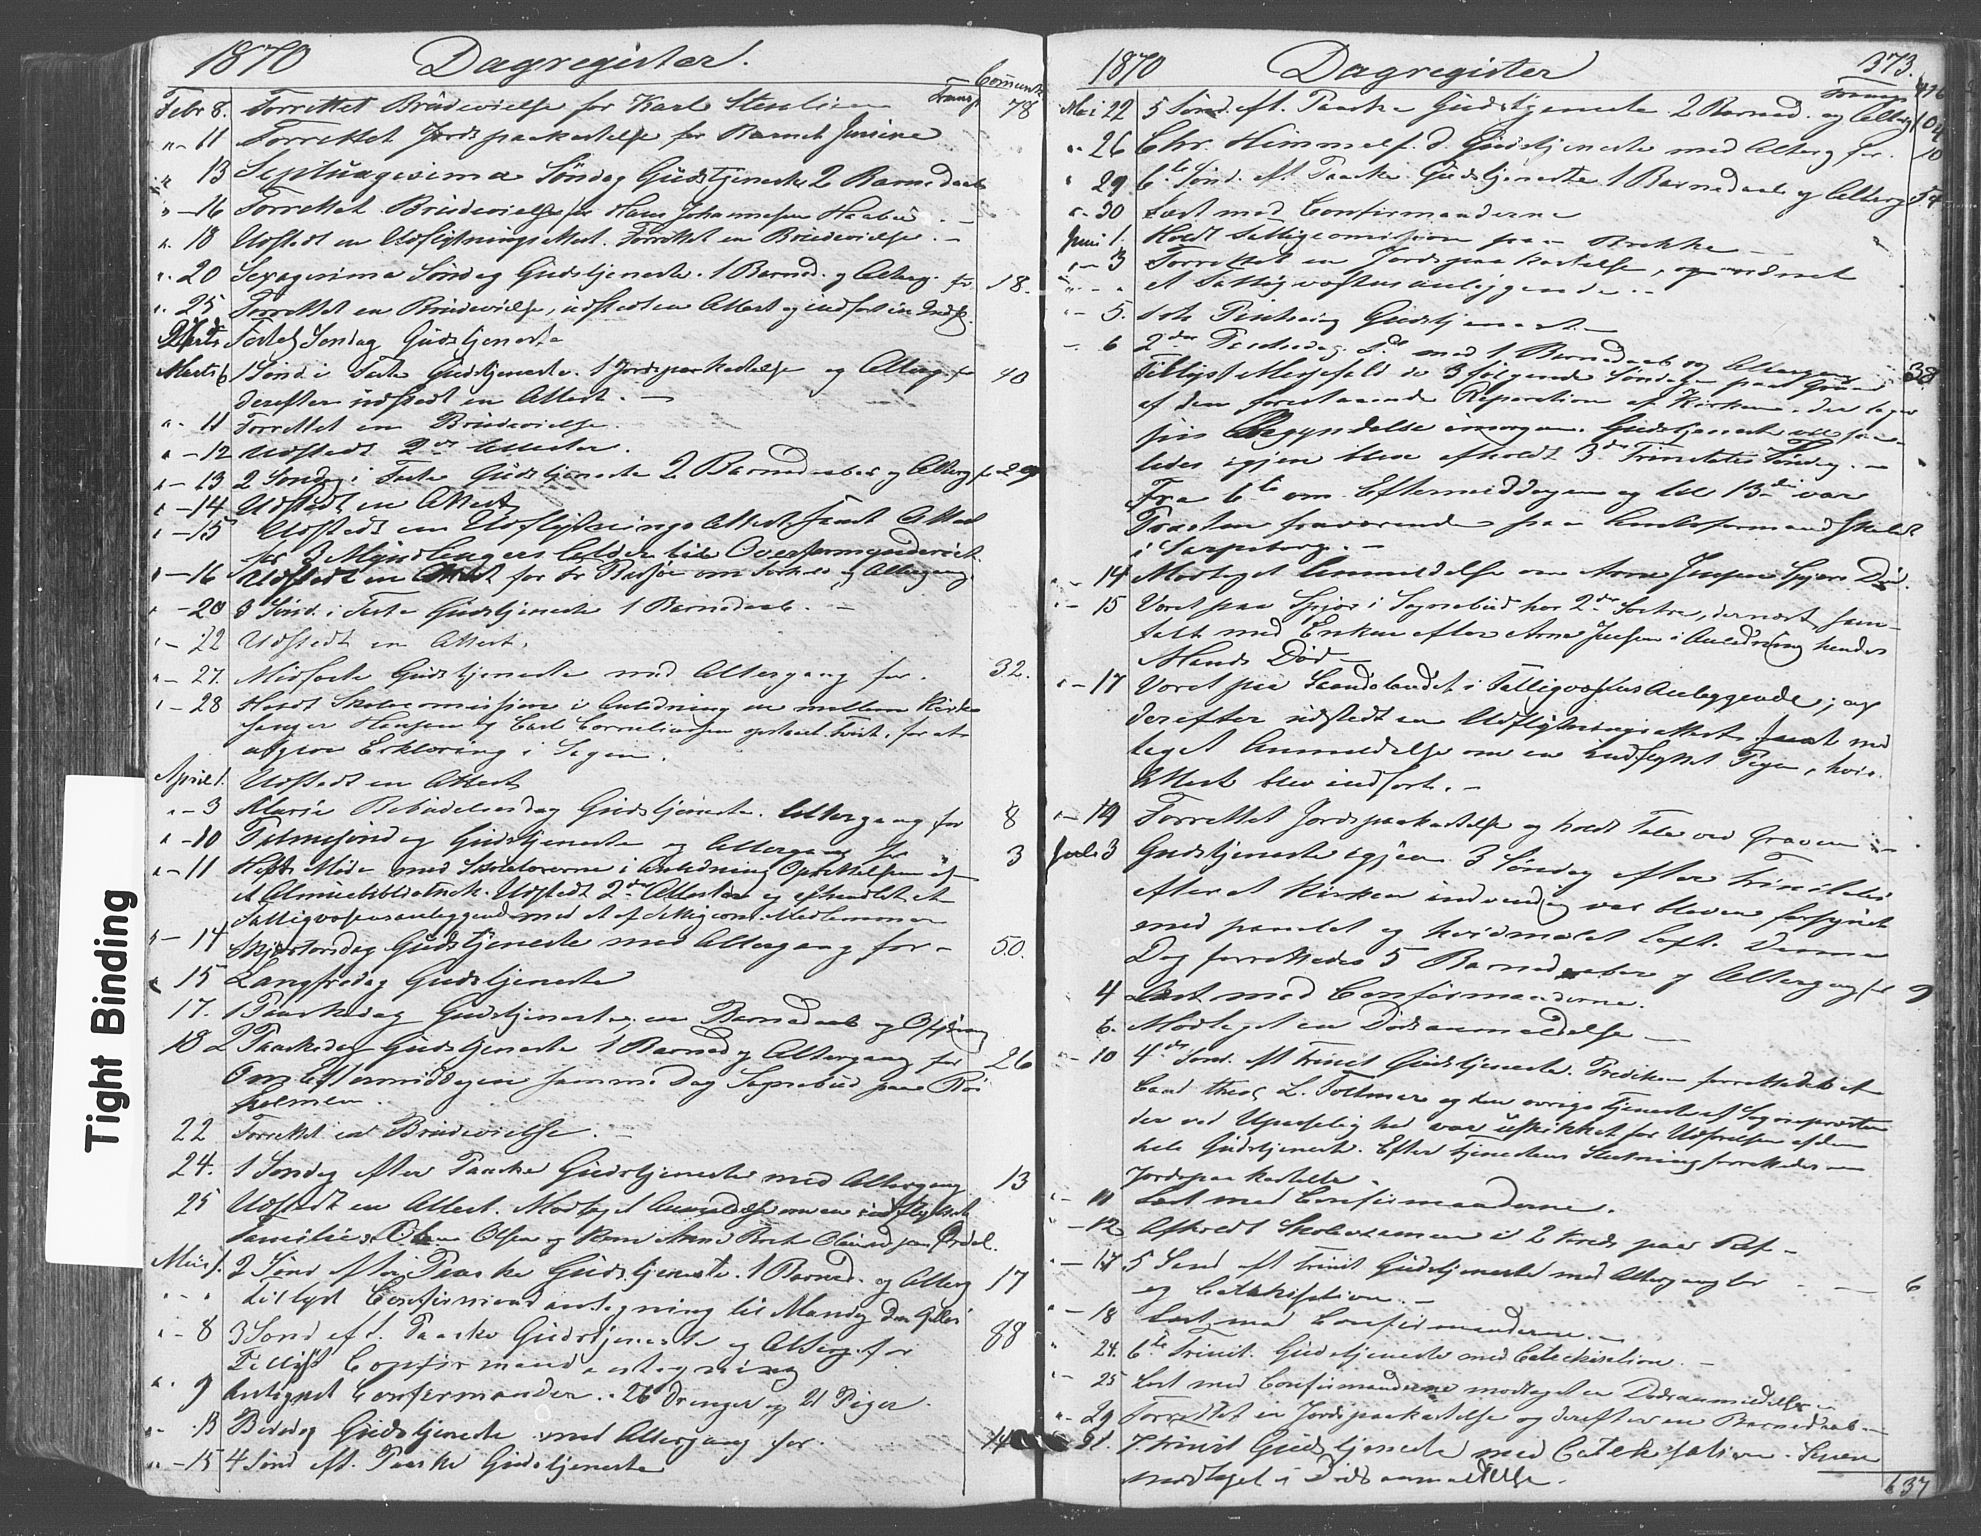 1870 Dagregister.
Communic.
Transp.
Febr 8. Forrettet Brudevielse for Karl 78
" - 11 Forrettet Jordspaakastelse for Barnet Jensine
" 13 Septuagesima Søndag Gudstjeneste 2 Barnedaab
" - 16 Forrettet Brudevielse for Hans Johannesen
" 18 Udstedt en Udflytningsattest. Forrettet en Brudevielse. -
" 20 Sexagesima Søndag Gudstjeneste. 1 Barned. og Alterg. for 18.
" 25 Forrettet en Brudevielse, udstedt en Attest og indført en
Fastel. Søndag Gudstjeneste
Marts 6 1 Sønd. i Faste Gudstjeneste. 1 Jordspaakastelse og Alterg. for 40
derefter udstedt en Attest. -
" - 11 Forrettet en Brudevielse.
" - 12 Udstedt 2de Attester.
" - 13 2 Søndag i Faste Gudstjeneste 2 Barnedaaber og Alterg f. 29
" - 14 Udstedt en Attest
" - 15 Udstedt en Udflytnings Attest, samt Attest
for 3 Myndlingers Alder til Overformynderiet.
" - 16 Udstedt en Attest for om og Altergang.
" - 20 3 Sønd. i Faste Gudstjeneste 1 Barnedaab. -
" - 22 Udstedt en Attest.
" - 27. Midfaste Gudstjeneste med Altergang for. 32.
" - 28 Holdt Skolecomission i Anledning en mellem Kirke
sanger Hansen og Carl Corneliussen opstaaet Tvist, for at
afgive Erklæring i Sagen.
April 1. Udstedt en Attest
" - 3 Mariæ Bebudelsesdag Gudstjeneste. Altergang for 8
" - 10 Palmesøndag Gudstjeneste og Altergang for 3
" - 11 Holdt Møde med Skolelærerne i Anledning Oprettelsen af
et Almuebibliothek. Udstedt 2de Attester og afhandlet et
Fattigvæsensanliggende med et af Fattigcom. Medlemmer
" - 14 Skjærtorsdag Gudstjeneste med Altergang for - 50.
" 15 Langfredag Gudstjeneste
17. 1 Paaskedag Gudstjeneste, en Barnedaab og Offring
18 2 Paaskedag Gudstjeneste 1 Barned og Altergang for 26
Om Eftermiddagen samme Dag Sognebud paa
holmen.
22 Forrettet en Brudevielse. -
24. 1 Søndag efter Paaske Gudstjeneste med Altergang 13
25 Udstedt en Attest. Modtaget Anmeldelse om en indflyttet
Familie, Olsen og Kone Anne
Mai 1. 2 Sønd efter Paaske Gudstjeneste. 1 Barned. og Alterg 17
" " tillyst Confirmandantegning til Mandag den 9de
" - 8 3 Sønd eft. Paaske Gudstjeneste og Alterg. for 88
Tillyst Confirmandantegning
" 9 Antegnet Confirmander. 26 Drenger og 21 Piger.
" - 13 Bededag Gudstjeneste med Altergang for. 14
" - 15 4 Sønd eft. Paaske Gudstjeneste
1870 Dagregister 373.
Transp. 416
Mai 22 5 Sønd. eft. Paaske Gudstjeneste 2 Barned. og Alterg 104
" 26 Chr. Himmelf. d. Gudstjeneste med Alterg for. 10
" 29 6te Sønd. eft Paaske Gudstjeneste 1 Barnedaab og Alterg 54
" 30 Læst med Confirmanderne
Juni 1. Holdt Fattigcomission paa Brekke -
" - 3 Forrettet en Jordspaakastelse, og ordnet
" - " et Fattigvæsensanliggende. -
" - 5. 1ste Pinsedag Gudstjeneste. -
- 6 2den Pinsedag. Gd. med 1 Barnedaab og Altergang 38
Tillyst Messefald de 3 følgende Søndage paa Grund
af den forestaaende Reparation af Kirken, der tager
sin Begyndelse imorgen. Gudstjeneste vil saa-
ledes igjen blive afholdt 3die Trinitatis Søndag. -
Fra 6te om Eftermiddagen og til 13de var
Præsten fraværende paa
i Sarpsborg. -
" - 14 Modtaget Anmeldelse om Arne Jensen Død.
" - 15 Været paa i Sognebud hos 2de dernæst sam-
talt med Enken efter Arne Jensen i Anledning hendes
Mands Død -
" - 17 Været paa i Fattigvæsens Anliggende; og
derefter udstedt en Udflytningsattest samt mod
taget Anmeldelse om en indflyttet Pige, hvis
Attest blev indført. -
" - 19 Forrettet Jordspaakastelse og holdt Tale ved Graven -
Juli 3 Gudstjeneste igjen 3 Søndag efter Trinitatis
efterat Kirken indvendig var bleven forsynet
med panelet og hvidmalet Loft. Denne
Dag forrettedes 5 Barnedaaber og Altergang for 9
4 Læst med Confirmanderne.
6. Modtaget en Dødsanmeldelse -
" - 10 4de Sønd. eft Trinit Gudstjeneste. Prædiken forrettedes af
Cand theol. L. og den øvrige Tjeneste af Sognepræsten
der ved Upasselighed var uskikket for Udførelsen af den
hele Gudstjeneste. Efter Tjenestens Slutning forrettedes en
Jordspaakastelse.
" - 11 Læst med Confirmanderne.
" - 12 Afholdt Skoleexamen i 2 Kreds paa
" - 17 5 Sønd eft Trinit Gudstjeneste med Altergang for - 6
og Catekisation. -
" - 18 Læst med Confirmanderne. -
" 24. 6te Trinit. Gudstjeneste med Catekisation. -
" - 25 Læst med Confirmanderne modtaget en Dødsanmeldelse -
" - 29 Forrettet en Jordspaakastelse og derefter en Barnedaab -
" 31. 7 Trinit Gudstjeneste med Catekisation. Senere
modtaget 1 Dødsanmeldelse.
637
Tight Binding